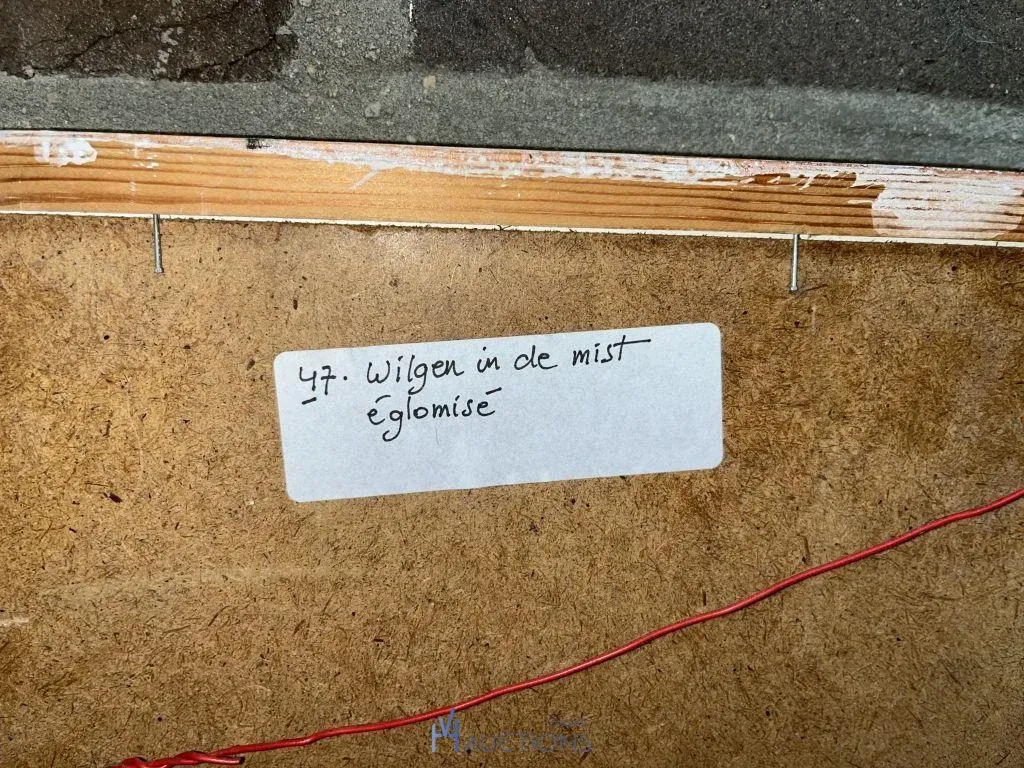 47. Wilgen in de mist
églomisé
AUCTIONS